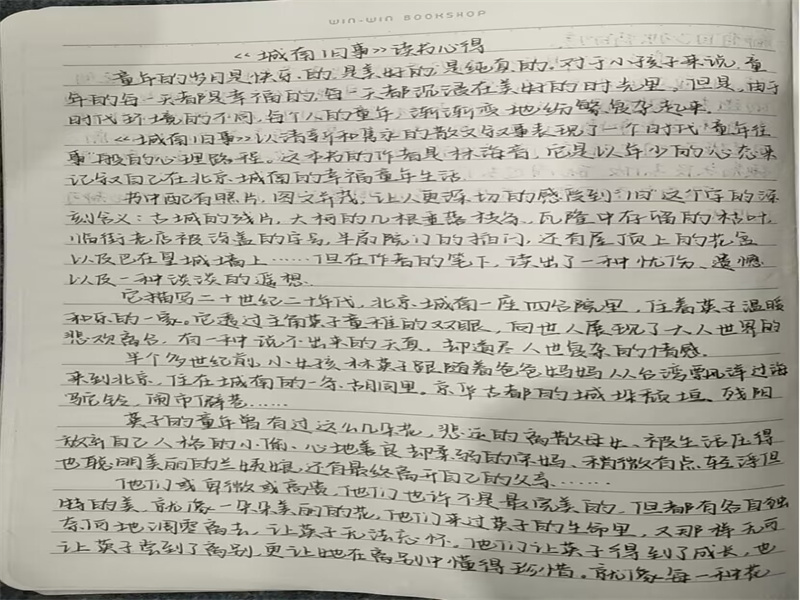 WIN-WIN BOOKSHOP
《城南旧事》读书心得
童年的岁月是快乐的,是美好的,是纯真的。对于小孩子来说,童
年的每一天都是幸福的,每一天都沉浸在美好的时光里。但是,由于
时代环境的不同,每个人的童年,渐渐变地纷繁复杂起来。
《城南旧事》以清新和隽永的散文叙事表现了一个时代童年往
事般的心理路程。这本书的作者是林海音,它是以年少的心态来
记叙自己在北京城南的幸福童年生活。
书中配有照片,图文并茂,让人更深切的感受到“旧”这个字的深
刻含义:古城的残片,大树的几根垂落枝条,瓦隆中存留的枯叶,
临街老店被沿盖的字号,半扇院门的插闩,还有屋顶上的花窗
以及巴在皇城墙上……但在作者的笔下,读出了一种忧伤、遗憾
以及一种淡淡的遥想。
它描写二十世纪二十年代,北京城南一座四合院里,住着英子温暖
和乐的一家。它透过主角英子童稚的双眼,向世人展现了大人世界的
悲欢离合,有一种说不出来的天真,却道尽人世复杂的情感。
半个多世纪前,小女孩林英子跟随着爸爸妈妈从台湾飘洋过海
来到北京,住在城南的一条胡同里。京华古都的城垛颓垣、残阳
驼铃、闹市僻巷……
英子的童年曾有过这么几朵花,悲还的离散母女、被生活压得
放弃自己人格的小偷、心地善良却柔弱的宋妈、稍微有点轻浮但
也聪明美丽的兰姨娘,还有最终离开自己的父亲……
他们或卑微或高贵,他们也许不是最完美的,但都有各自独
特的美,就像一朵朵美丽的花,他们来过英子的生命里,又那样无可
奈何地凋零离去,让英子无法忘怀。他们让英子得到了成长,也
让英子尝到了离别,更让她在离别中懂得珍惜。就像每一种花